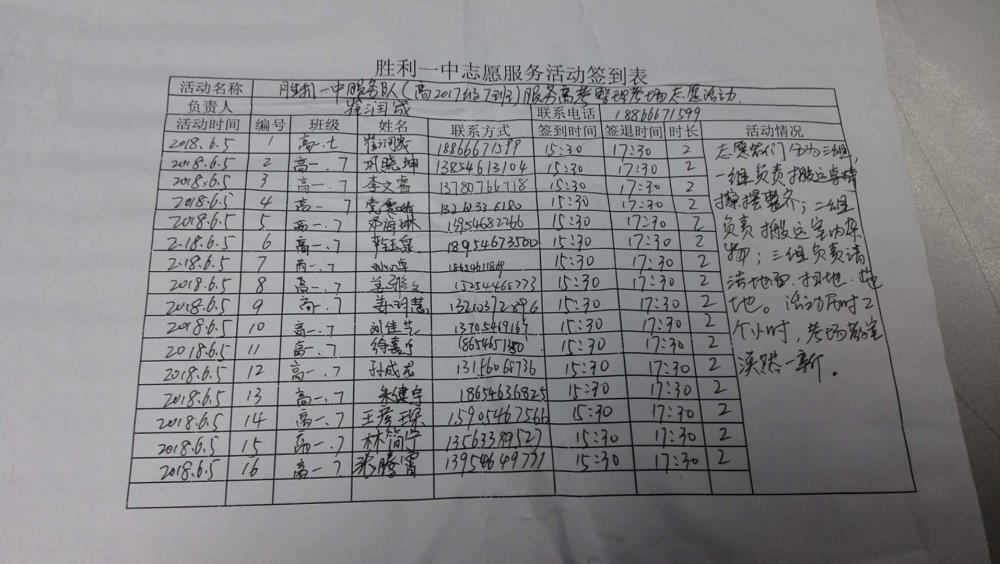 胜利一中志愿服务活动签到表
活动名称 胜利一中服务队(高2017级7班)服务高考整理考场志愿活动
负责人 崔润成 联系电话 18866671599
活动时间 编号 班级 姓名 联系方式 签到时间 签退时间 时长 活动情况
2018.6.5 1 高一.七 15:30 17:30 2 志愿者们分为三组,
2018.6.5 2 高一.7 巩晓坤 13854613104 15:30 17:30 2 一组负责搬运桌椅
2018.6.5 3 高一.7 李文睿 13780766718 15:30 17:30 2 擦摆整齐;二组
2018.6.5 4 高一.7 15:30 17:30 2 负责搬运室内杂
2018.6.5 5 高一.7 邓海琳 15:30 17:30 2 物;三组负责清
2018.6.5 6 高一.7 18954673500 15:30 17:30 2 洁地面.扫地.拖
2018.6.5 7 高一.7 15:30 17:30 2 地。活动历时2
2018.6.5 8 高一.7 15254468773 15:30 17:30 2 个小时,考场教室
2018.6.5 9 高一.7 姜明慧 13210372896 15:30 17:30 2 焕然一新.
2018.6.5 10 高一.7 刘佳艺 13705469167 15:30 17:30 2
2018.6.5 11 高一.7 15:30 17:30 2
2018.6.5 12 高一.7 孙成龙 15:30 17:30 2
2018.6.5 13 高一.7 朱健宇 18654636825 15:30 17:30 2
2018.6.5 14 高一.7 王彦琛 15905467566 15:30 17:30 2
2018.6.5 15 高一.7 林简宁 13563389527 15:30 17:30 2
2018.6.5 16 高一.7 张腾霄 13954649731 15:30 17:30 2